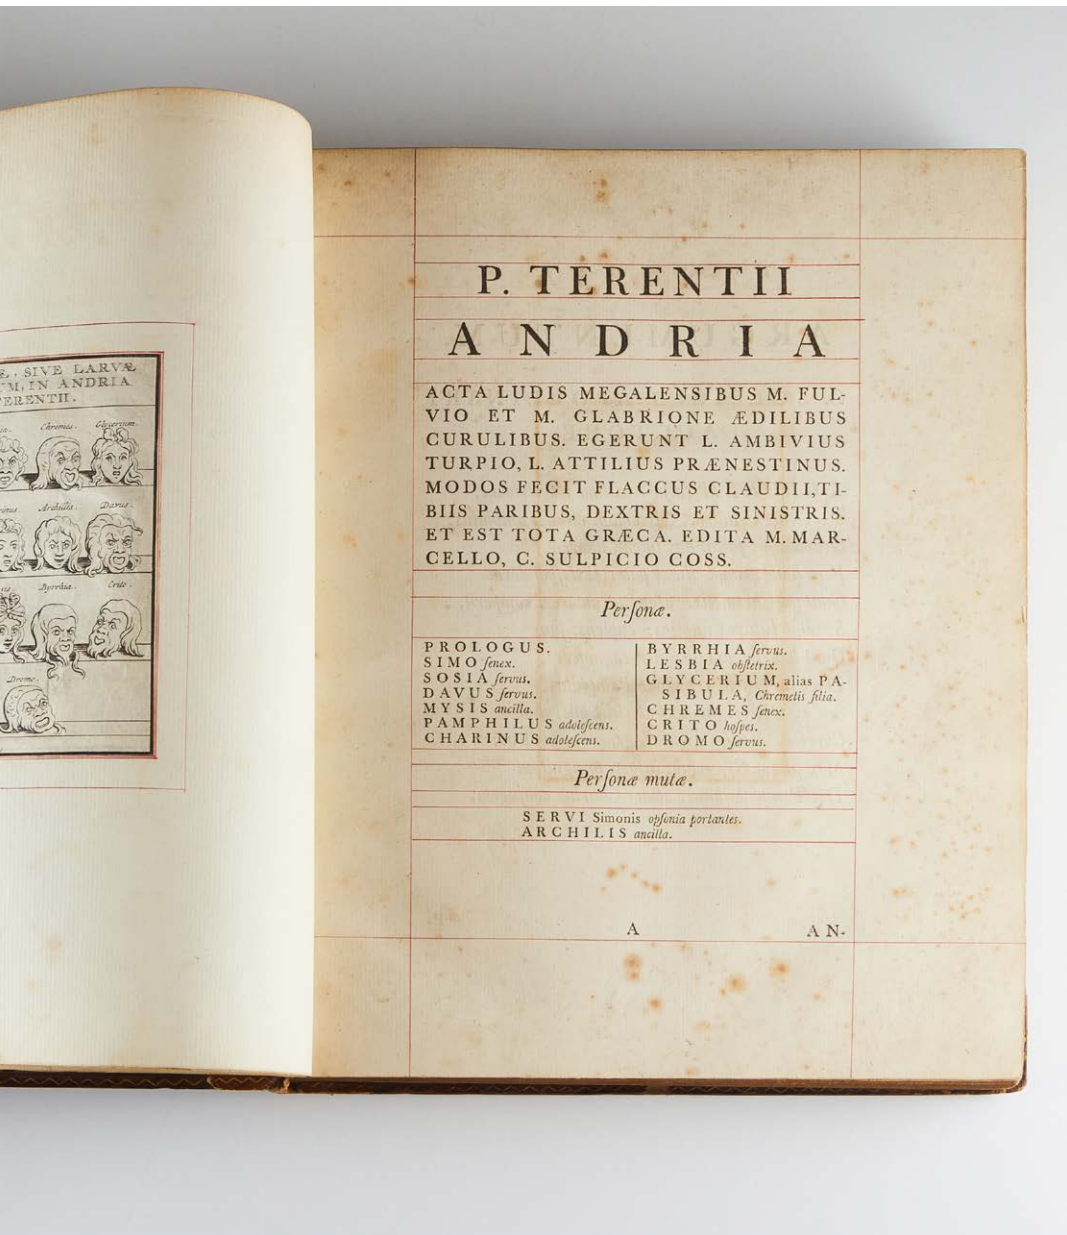 SIVE LARVÆ
IN ANDRIA
TERENTII.
Chremes. Glycerium.
Archillis. Davus.
Byrrhia. Crito.
Dromo.
P. TERENTII
ANDRIA
ACTA LUDIS MEGALENSIBUS M. FUL-
VIO ET M. GLABRIONE ÆDILIBUS
CURULIBUS. EGERUNT L. AMBIVIUS
TURPIO, L. ATTILIUS PRÆNESTINUS.
MODOS FECIT FLACCUS CLAUDII, TI-
BIIS PARIBUS, DEXTRIS ET SINISTRIS.
ET EST TOTA GRÆCA. EDITA M. MAR-
CELLO, C. SULPICIO COSS.
Perſonæ.
PROLOGUS.
SIMO ſenex.
SOSIA ſervus.
DAVUS ſervus.
MYSIS ancilla.
PAMPHILUS adoleſcens.
CHARINUS adoleſcens.
BYRRHIA ſervus.
LESBIA obſtetrix.
GLYCERIUM, alias PA-
SIBULA, Chremetis filia.
CHREMES ſenex.
CRITO hoſpes.
DROMO ſervus.
Perſonæ mutæ.
SERVI Simonis opſonia portantes.
ARCHILIS ancilla.
A AN-